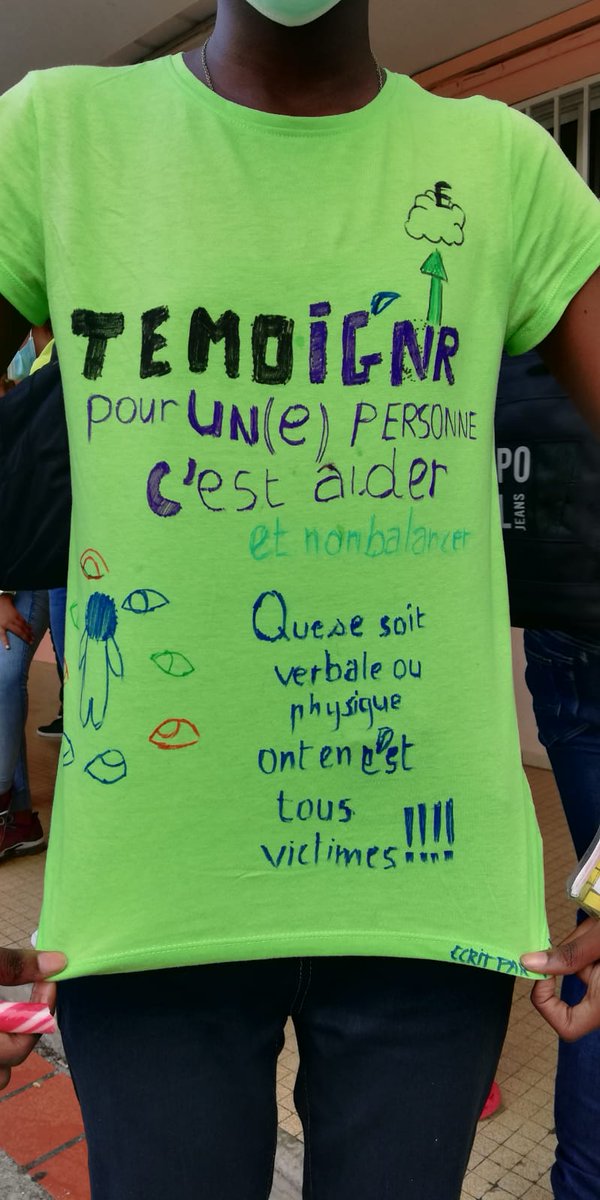 E
TEMOIGNR
pour UN(e) PERSONNE
c'est aider
et non balancer
Que se soit
verbale ou
physique
ont en est
tous
victimes !!!!
ECRIT PAR
PO
JEANS